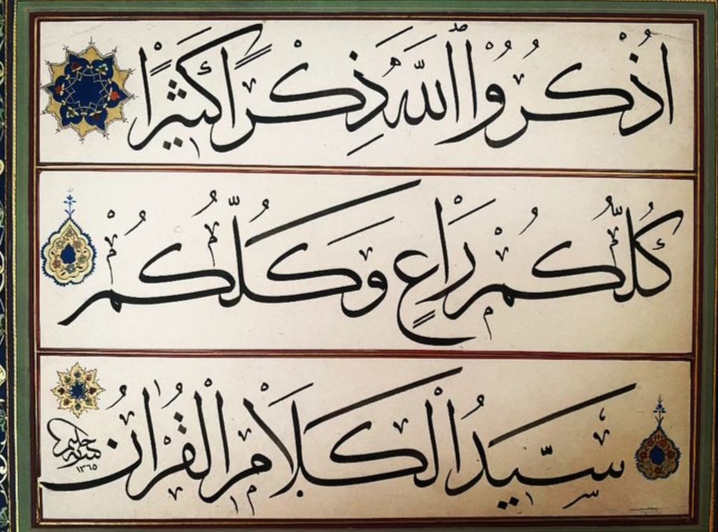 اُذْكُرُوا اللّٰهَ ذِكْرًا كَثِيرًا
كُلُّكُمْ رَاعٍ وَكُلُّكُمْ
سَيِّدُ الْكَلَامِ الْقُرْاٰنُ
١٣٦٥